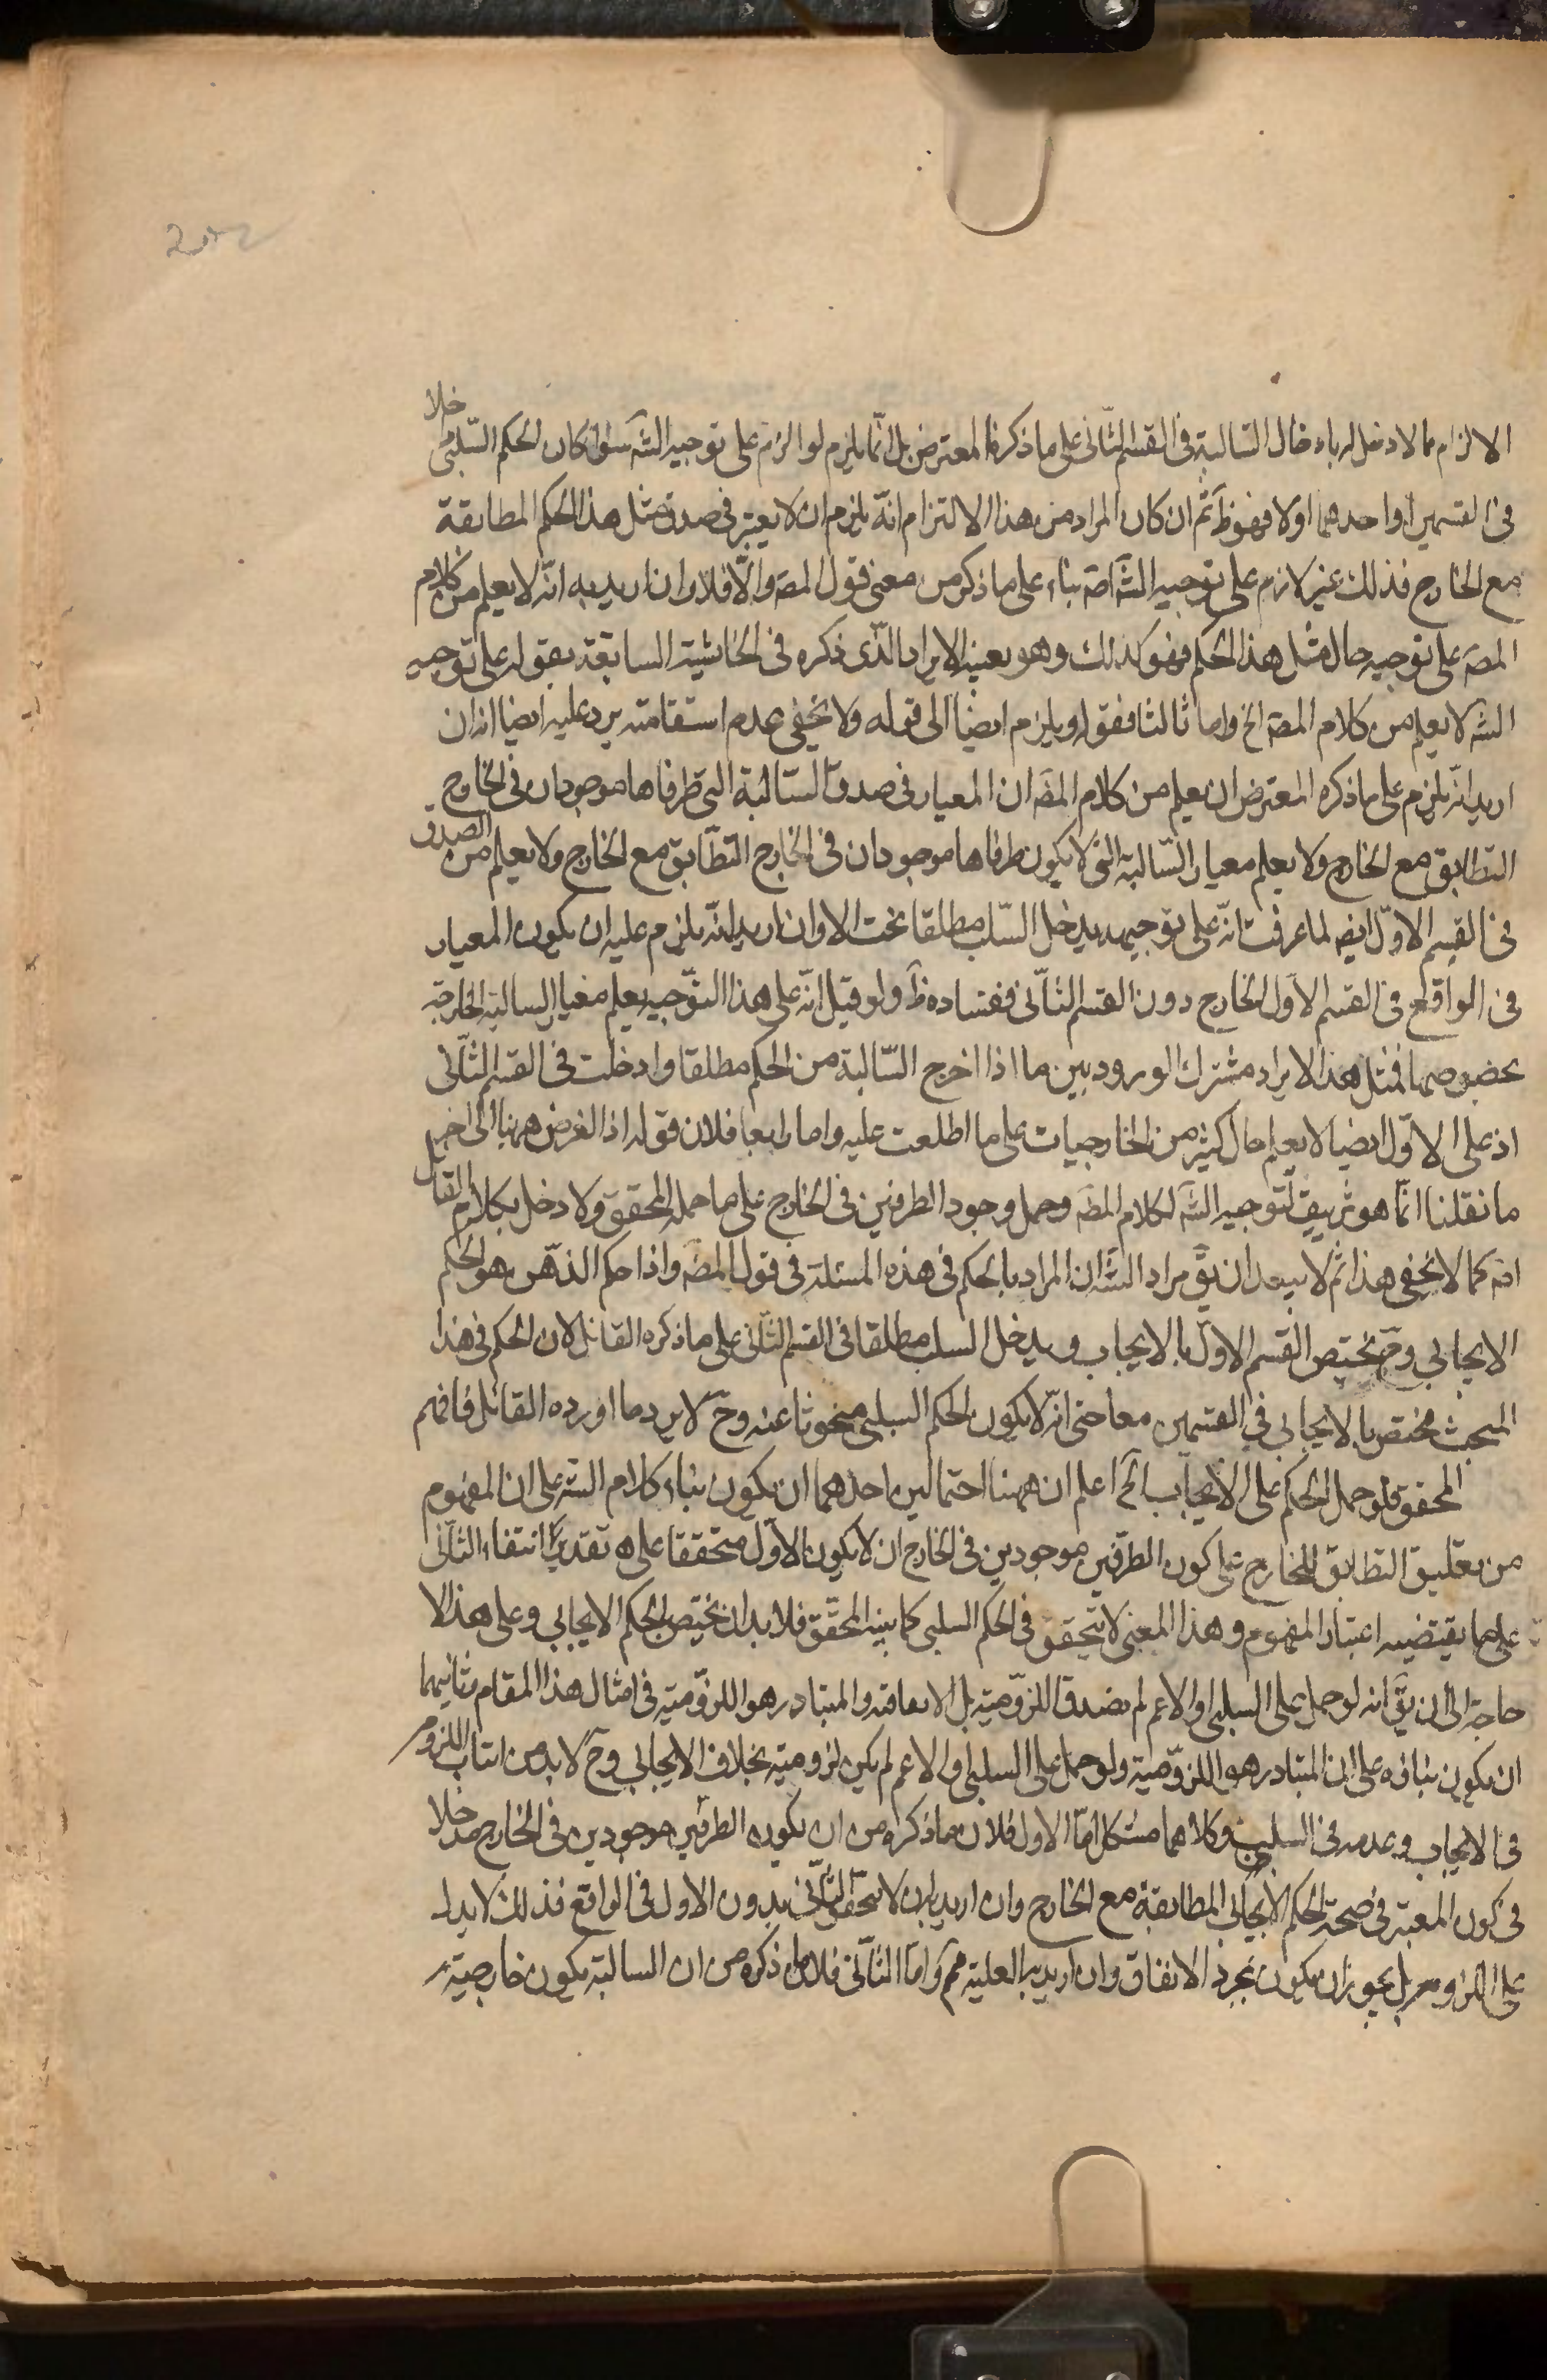 الالزام مما لا دخل له بادخال السّالبة فى القسم الثّانى على ما ذكره المعترض بل انّما يلزم لو الزم على توجيه الشّه سواء كان الحكم السّلبى خلا
فى القسمين او احدهما او لا فهو ظَ ثم ان كان المراد من هذا الالتزام انّه يلزم ان لا يعتبر فى صدق مثل هذا الحكم المطابقة
مع الخارج فذلك غير لازم على توجيه الشّه اصَ بناء على ما ذكر من معنى قول المصَ والّا فلا وان اريد به انّه لا يعلم من كلام
المصَ على توجيه حال مثل هذا الحكم فهو كذلك وهو بعينه الايراد الّذى ذكره فى الحاشية السابقة بقوله على توجيه
الشه لا يعلم من كلام المصَ الخ واما ثالثا فقوله ويلزم ايضاً الى قوله ولا يخفى عدم استقامته يرد عليه ايضا انه ان
اريد انّه يلزم على ما ذكره المعترض ان يعلم من كلام المصَ ان المعيار فى صدق السّالبة التى طرفاها موجودان فى الخارج
التطابق مع الخارج ولا يعلم معيار السّالبة التى لا يكون طرفاها موجودان فى الخارج التطابق مع الخارج ولا يعلم من الصدق
فى القسم الاوّل ايضَ لما عرفت انّه على توجيهه يدخل السّلب مطلقا تحت الا وان اريد انّه يلزم عليه ان يكون المعيار
فى الواقع فى القسم الاول الخارج دون القسم الثّانى ففساده ظَ ولو قيل انّه على هذا التوّجيه يعلم معيار السالبة الخارجية
بخصوصها فمثل هذا الايراد مشترك الورود بين ما اذا اخرج السّالبة من الحكم مطلقا وادخلت فى القسم الثّانى
اذ على الاوّل ايضا لا يعلم حال كثير من الخارجيات على ما اطلعت عليه واما رابعا فلان قوله اذ الغرض هٰهنا الى اخر
ما نقلنا انّما هو تزييف لتوجيه الشّه لكلام المصَ وحمل وجود الطرفين فى الخارج على ما حمله المحقق ولا دخل بكلام القائل
اصَ كما لا يخفى هذا ثم لا يبعد ان يقَ مراد الشّه ان المراد بالحكم فى هذه المسئلة فى قول المصَ واذا حكم الذّهن هو الحكم
الايجابى وحَ يختص القسم الاوّل بالايجاب ويدخل السلب مطلقا فى القسم الثّانى على ما ذكره القائل لان الحكم فى هذا
المبحث مختص بالايجابى فى القسمين معا حتى انّه لا يكون الحكم السلبى مبحوثا عنه وحَ لا يرد ما اورده القائل فافهم
المحقق فلو حمل الحكم على الايجاب الخَ اعلم ان ههنا احتمالين احدهما ان يكون بناء كلام الشه على ان المفهوم
من تعليق التطابق للخارج على كون الطرفين موجودين فى الخارج ان لا يكون الاوّل متحققا على تقدير انتفاء الثّانى
على ما يقتضيه اعتبار المفهوم وهذا المعنى لا يتحقق فى الحكم السلبى كما بينه المحقّق فلا بد ان يختص الحكم الايجابى وعلى هذا لا
حاجة الى ان يقَ انه لو حمل على السلبى او الاعم لم يصدق اللزوّمية بل الاتفاقية والمتبادر هو اللزوّمية فى امثال هذا المقام وثانيهما
ان يكون بناؤه على ان المتبادر هو اللزوّمية ولو حمل على السلبى او الاعم لم يكن لزومية بخلاف الايجابى وحَ لا بد من اثبات اللزوم
فى الايجاب وعدمه فى السلب وكلاهما مشكل امّا الاول فلان ما ذكره من ان يكون الطرفين موجودين فى الخارج مدخلا
فى كون المعتبر فى صحة الحكم الايجابى المطابقة مع الخارج وان اريد به ان لا يتحقق الثّانى بدون الاول فى الواقع فذلك لا يدل
على اللزوم بل يجوز ان يكون بمجرد الاتفاق وان اريد به العلية فمَ وامّا الثّانى فلان ما ذكره من ان السالبة يكون خارجية